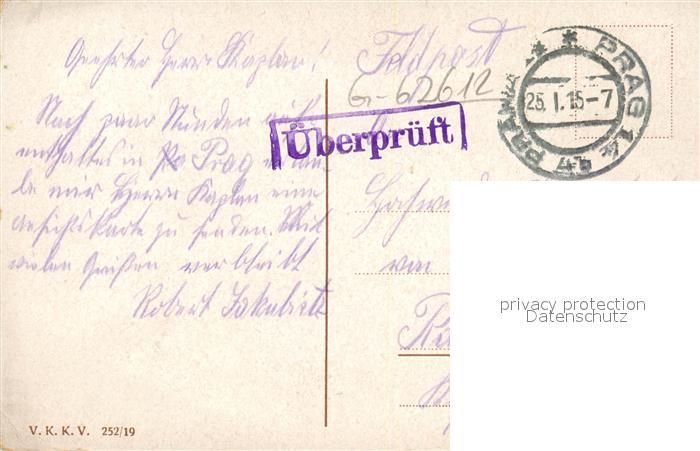 Geehrter Herr Kaplan!
Nach paar Stunden
enthaltes in Prag
be mir Herrn Kaplan eine
Ansichtskarte zu senden. Mit
vielen Grüßen verbleibt
Robert
Feldpost
G-62612
Überprüft
PRAG 14
25. I. 15-7
Hochw
von
privacy protection
Datenschutz
V. K. K. V. 252/19